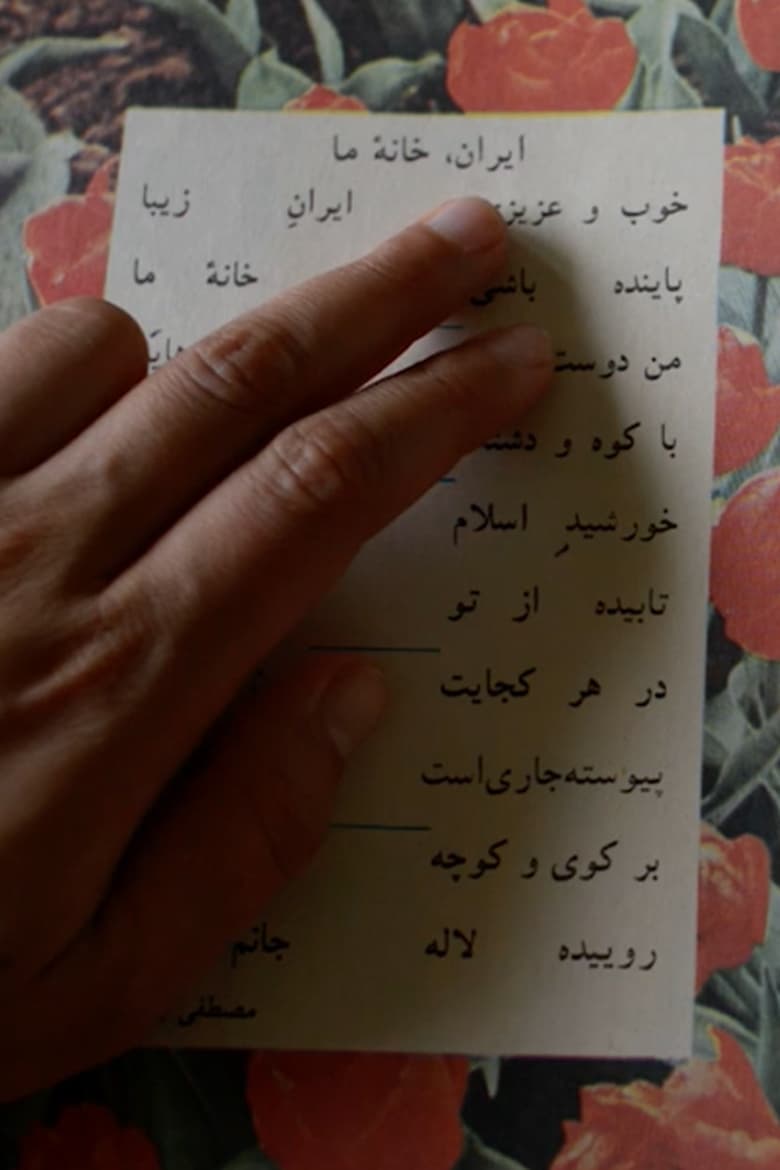 ایران، خانهٔ ما
خوب و عزیزی ایرانِ زیبا
پاینده باشی خانهٔ ما
من دوست
با کوه و دشت
خورشیدِ اسلام
تابیده از تو
در هر کجایت
پیوسته‌جاری‌است
بر کوی و کوچه
روییده لاله جانم
مصطفی